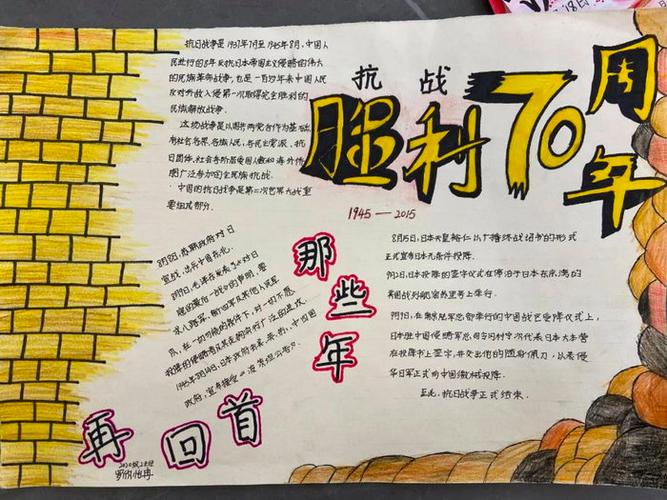 抗战
胜利70周年
1945—2015
抗日战争是1937年7月至1945年8月,中国人
民进行的8年反抗日本帝国主义侵略的伟大
的民族革命战争,也是一百多年来中国人民
反对外敌入侵第一次取得完全胜利的
民族解放战争。
这场战争是以国共两党合作为基础,
有社会各界、各族人民、各民主党派、抗
日团体、社会各阶层爱国人士和海外侨
胞广泛参加的全民族抗战。
中国的抗日战争是第二次世界大战重
要组成部分。
那些年
再回首
8月8日,苏联政府对日
宣战,出兵中国东北。
8月9日,毛泽东发表了《对日
寇的最后一战》的声明,要
求八路军、新四军及其他人民军
队,在一切可能的条件下,对一切不愿
投降的侵略者及其走狗实行广泛的进攻。
政府,宣布接受《波茨坦公告》。
8月15日,日本天皇裕仁以广播终战诏书的形式
正式宣布日本无条件投降。
9月2日,日本投降的签字仪式在停泊于日本东京湾的
美国战列舰密苏里号上举行。
9月9日,在南京陆军总部举行的中国战区受降仪式上,
日本驻中国侵略军总司令冈村宁次代表日本大本营
在投降书上签字,并交出他的随身佩刀,以表侵
华日军正式向中国缴械投降。
至此,抗日战争正式结束。